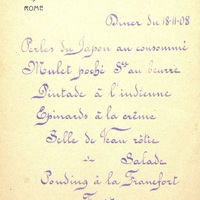 ROME
Diner du 18-11-08
Perles du Japon au consommé
Mulet poché Sce au beurre
Pintade à l'indienne
Epinards à la crème
Selle de Veau rôtie
Salade
Pouding à la Francfort